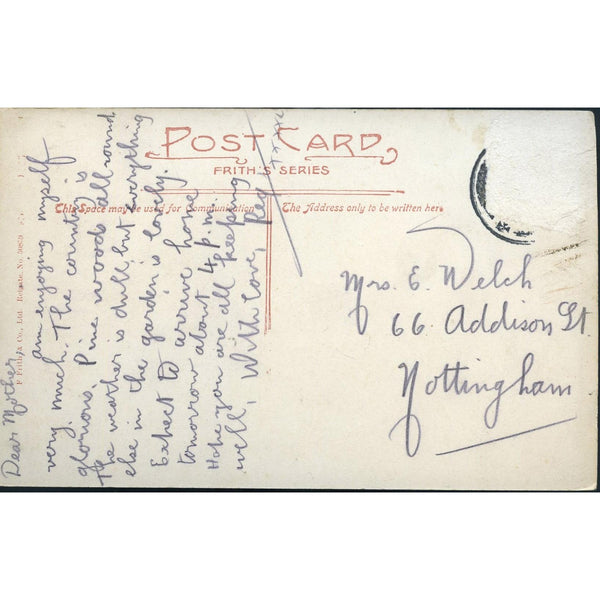 POST CARD
FRITH'S SERIES
This Space may be used for Communication.
The Address only to be written here.
F. Frith & Co., Ltd., Reigate. No.
Dear Mother
am enjoying myself
very much. The country is
glorious. Pine woods all round
The weather is dull but everything
else in the garden is lovely.
Expect to arrive home
tomorrow about 4 p.m.
Hope you are all keeping
well, With love, Reg
Mrs. E. Welch
66 Addison St
Nottingham